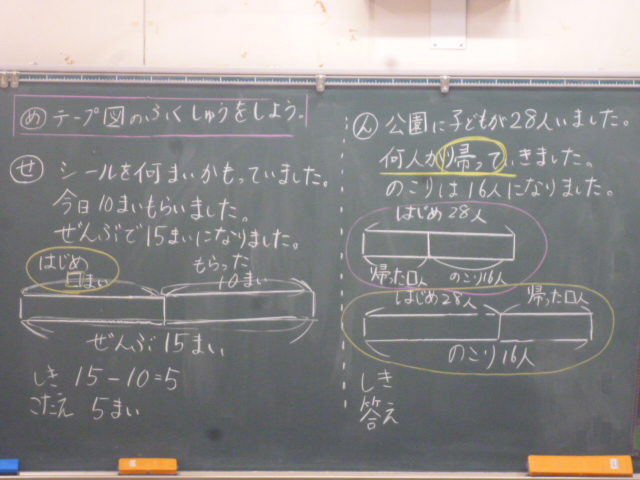 め テープ図のふくしゅうをしよう。
せ シールを何まいかもっていました。
今日10まいもらいました。
ぜんぶで15まいになりました。
はじめ
□まい
もらった
10まい
ぜんぶ15まい
しき 15-10=5
こたえ 5まい
ん 公園に子どもが28人いました。
何人かが帰っていきました。
のこりは16人になりました。
はじめ28人
帰った□人
のこり16人
はじめ28人
帰った□人
のこり16人
しき
答え